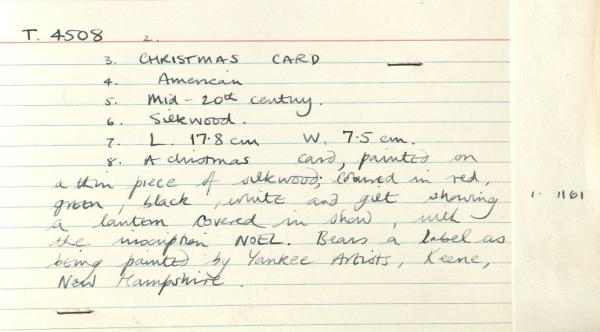 T. 4508 2.
3. CHRISTMAS CARD
4. American
5. Mid-20th century.
6. Silkwood.
7. L. 17.8cm W. 7.5 cm.
8. A christmas card, painted on
a thin piece of silkwood, coloured in red,
green, black, white and gilt showing
a lantern covered in snow, with
the inscription NOEL. Bears a label as
being painted by Yankee Artists, Keene,
New Hampshire.
1. 1161